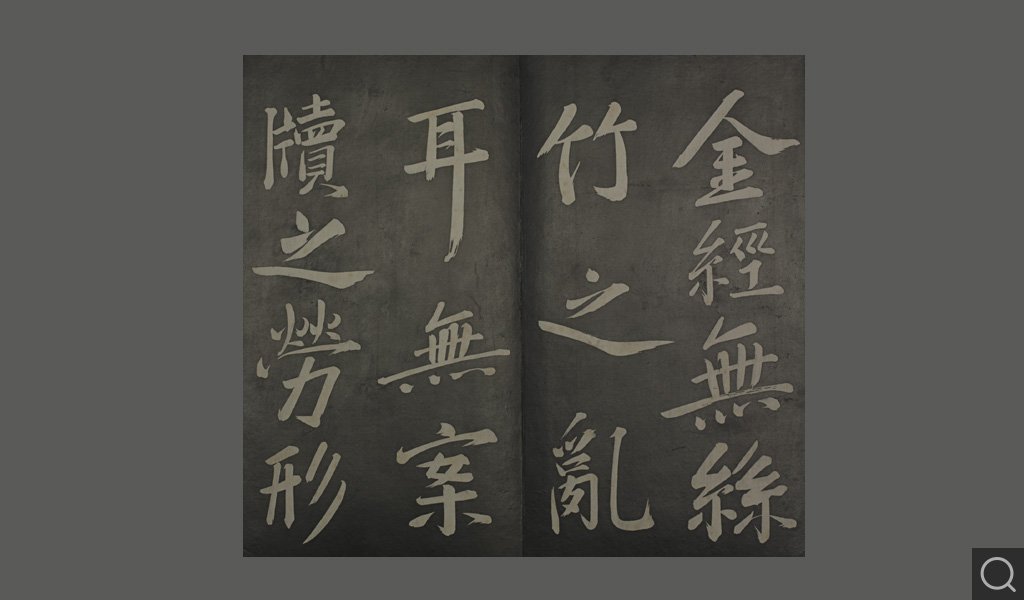 金經無絲
竹之亂
耳無案
牘之勞形